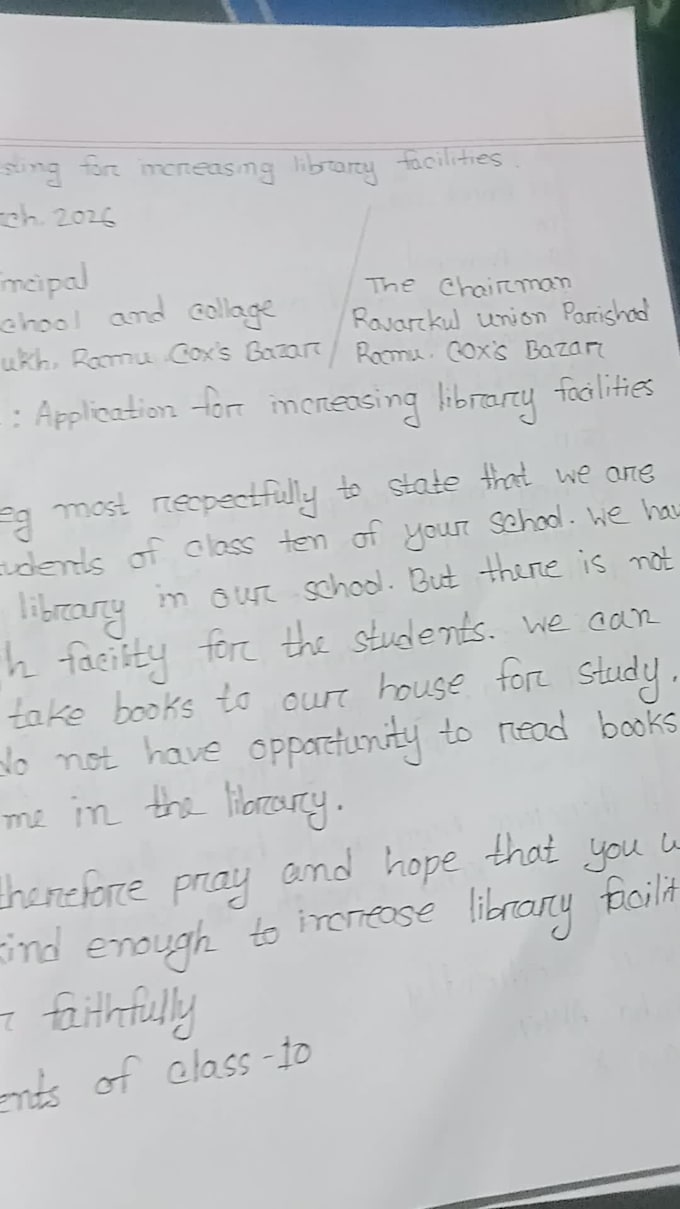 sting for increasing library facilities.
ch. 2026
ncipal
chool and collage
ukh, Ramu Cox's Bazar /
The Chairman
Rajarkul Union Parishad
Ramu. Cox's Bazar
: Application for increasing library facilities
eg most recpectfully to state that we are
udents of class ten of your school. We hav
library in our school. But there is not
h facility for the students. we can
take books to our house for study.
do not have opportunity to read books
me in the library.
therefore pray and hope that you w
kind enough to increase library facilit
r faithfully
ents of class-10